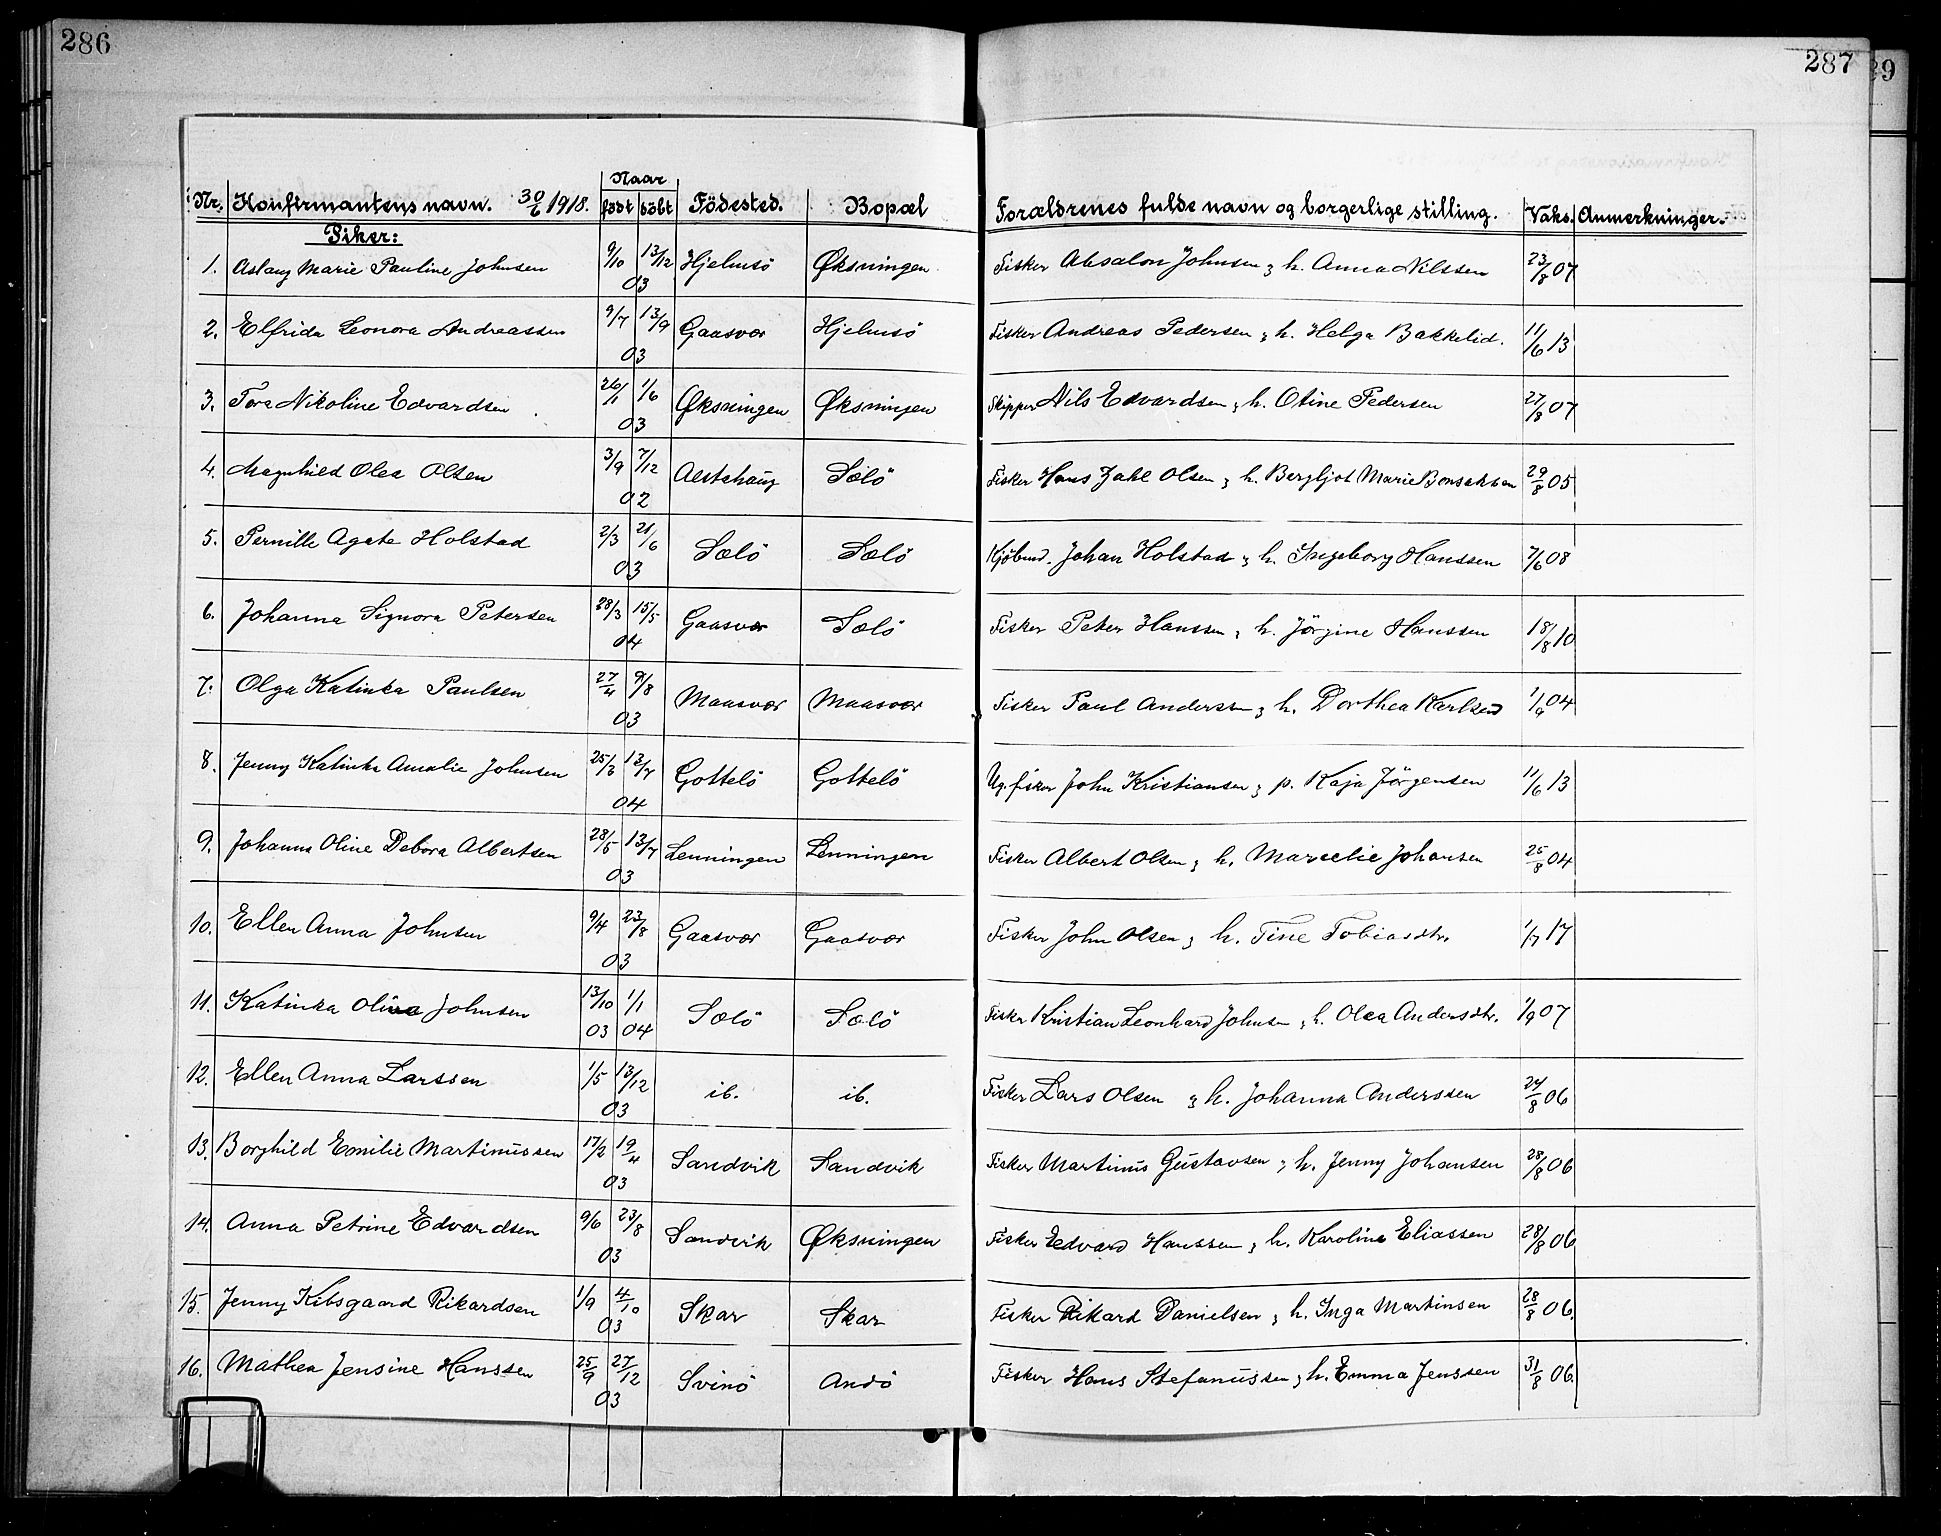 286
287
29
Naar
Nr. Konfirmantens navn. 30/6 1918. født døbt Fødested. Bopæl Forældrenes fulde navn og borgerlige stilling. Vaks. Anmerkninger.
Piker:
1. Aslaug Marie Pauline Johnsen 9/10 13/12 03 Hjelmsö Øksningen. Fisker Absalon Johnsen & h. Anna Nilssen 23/8 07
2. Elfrida Leonora Andreassen 9/7 13/9 03 Gaasvær Hjelmsö Fisker Andreas Pedersen & h. Helga Bakkelid. 11/6 13
3. Tora Nikoline Edvardsen 26/1 1/6 03 Øksningen Øksningen Skipper Nils Edvardsen & h. Otine Pedersen 27/8 07
4. Magnhild Olea Olsen 3/9 7/12 02 Alstahaug Sælö Fisker Hans Zahl Olsen & h. Bergljot Marie Bonsaksen 29/8 05
5. Pernille Agate Holstad 2/3 21/6 03 Sælö Sælö Kjöbmd. Johan Holstad & h. Ingeborg Hanssen 7/6 08
6. Johanna Signora Petersen 28/3 15/5 04 Gaasvær Sælö Fisker Peter Hanssen & h. Jörgine Hanssen 18/8 10
7. Olga Katinka Paulsen 27/4 9/8 03 Maasvær Maasvær Fisker Paul Anderssen & h. Dorthea Karlsen 1/9 04
8. Jenny Katinka Amalie Johnsen 25/3 13/7 04 Gottelö Gottelö Ug. fisker John Kristiansen & p. Kaja Jörgensen 11/6 13
9. Johanna Oline Debora Albertsen 28/5 13/7 03 Lenningen Lenningen Fisker Albert Olsen & h. Marselie Johansen 25/8 04
10. Ellen Anna Johnsen 9/4 23/8 03 Gaasvær Gaasvær Fisker John Olsen & h. Tine Tobiasdtr. 1/7 17
11. Katinka Oliva Johnsen 13/10 03 1/1 04 Sælö Sælö Fisker Kristian Leonhard Johnsen & h. Olea Andersdtr. 1/9 07
12. Ellen Anna Larssen 1/5 13/12 03 ib. ib. Fisker Lars Olsen & h. Johanna Anderssen 24/8 06
13. Borghild Emilie Martinussen 17/2 19/4 03 Sandvik Sandvik Fisker Martinus Gustavsen & h. Jenny Johansen 28/8 06
14. Anna Petrine Edvardsen 9/6 23/8 03 Sandvik Øksningen Fisker Edvard Hanssen & h. Karoline Eliassen 28/8 06
15. Jenny Kibsgaard Rikardsen 1/9 4/10 03 Skar Skar Fisker Rikard Danielsen & h. Inga Martinsen 28/8 06.
16. Mathea Jensine Hanssen 25/9 27/12 03 Svinö Andö Fisker Hans Stefanussen & h. Emma Jenssen 31/8 06.